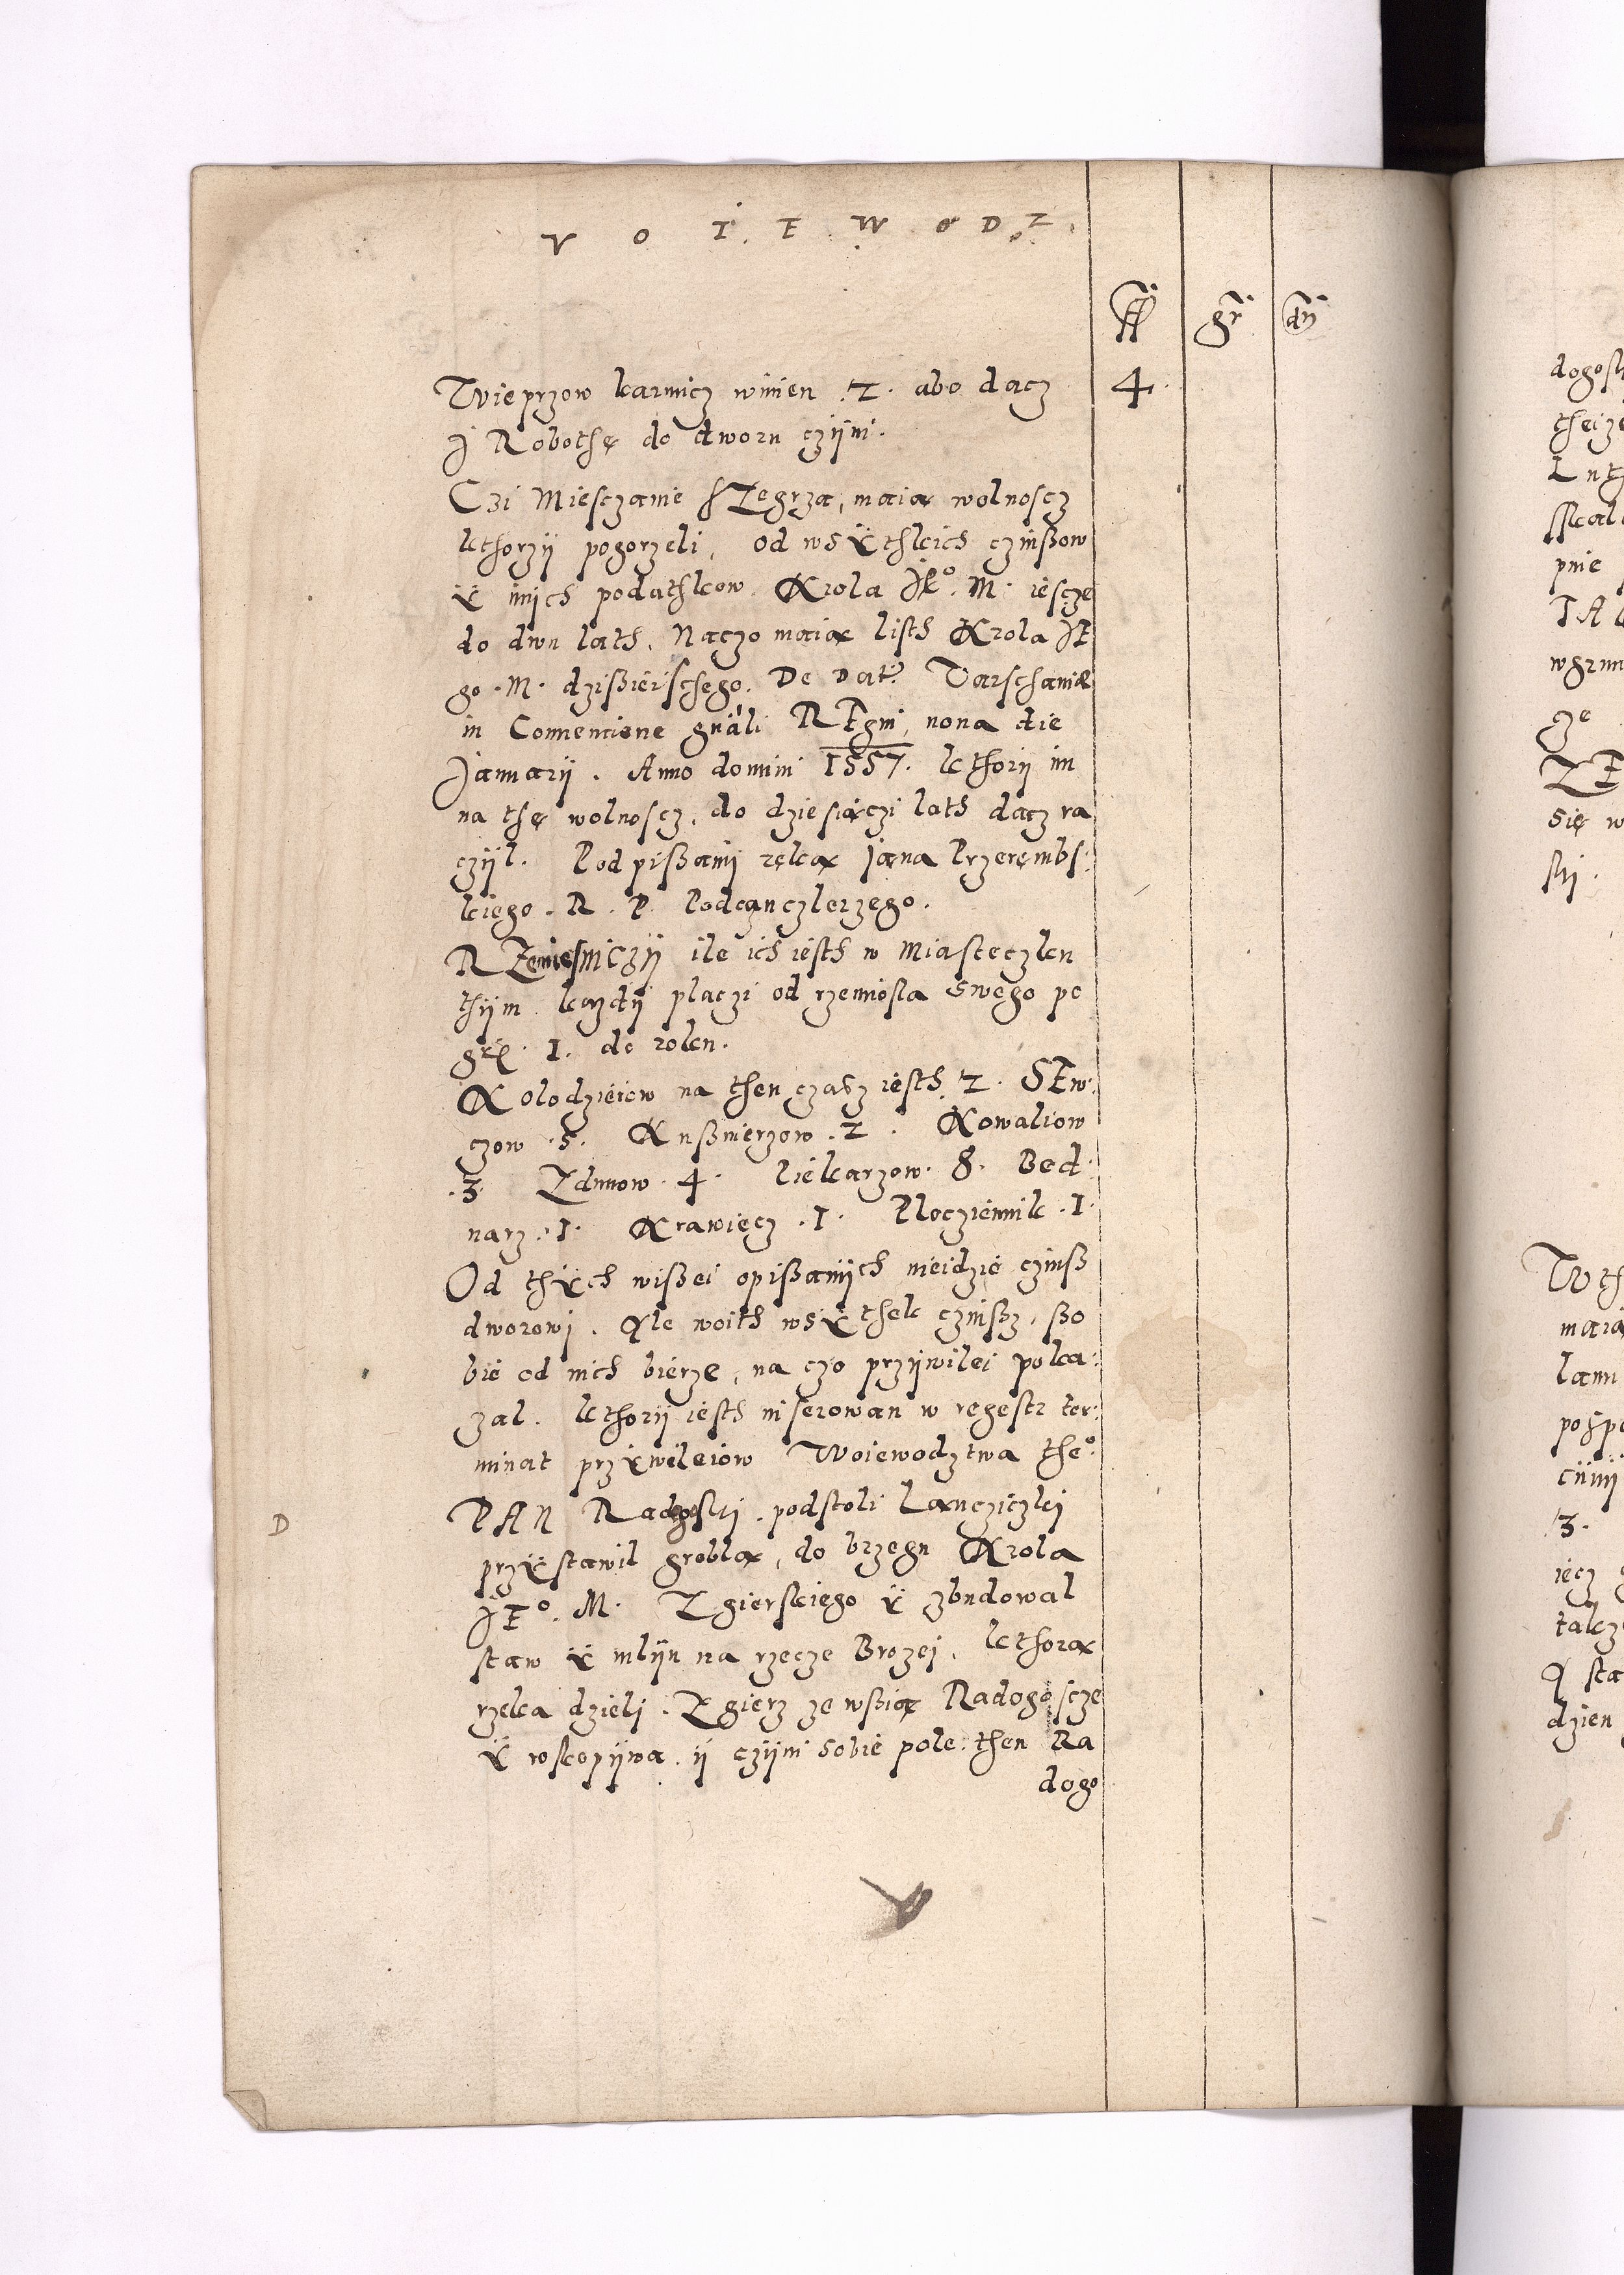 V O I E W O D Z
fl gr dn
Wieprzow karmicz winien .2. abo dacz 4.
J Robothę do dworu czÿni.
Czi Miesczanie sZegrza, maią wolnoscz
kthorzÿ pogorzeli, od wsÿthkich czinßow
ÿ inich podathkow. Krola JEº. M. iescze
do dwu lath. Naczo maią listh Krola JE
go .M. dzißieischego. De Datt Varschaviæ
in Conventione gnãli REgni, nona die
Januarij. Anno domini 1557. kthorÿ im
na thę wolnoscz, do dziesiączi lath dacz ra
czÿl. Podpißanij ręką Jana Przerembs:
kiego. R. P. Podcanczlerzego.
RZemiesniczÿ ile ich iesth w Miasteczku
thÿm kazdÿ placzi od rzemiosla swego po
grß. 1. do roku.
Kolodzieiow na then czasz iesth .2. SEw:
czow .5. Kußnierzow .2. Kowaliow
.3. Zdunow .4. Piekarzow .8. Bed:
narz .1. Krawiecz .1. Plocziennik .1.
Od thÿch wißei opißanÿch nieidzie czinß
dworowi. Ale woith wsÿthek czinßz, ßo
bie od nich bierze, na czo przÿwilei poka:
zal. kthorÿ iesth inserowan w regestr ter:
minat przÿwileiow Woiewodztwa theº.
D PAN Radogski. podstoli Lancziczki
przÿstawil groblą, do brzegu Krola
JEº. M. Zgierskiego ÿ zbudowal
staw ÿ mlÿn na rzecze Brozei, kthora
rzeka dzieli. Zgierz ze wßią Radogoscze
ÿ roskopÿwa ÿ czÿni sobie pole then Ra
dogo